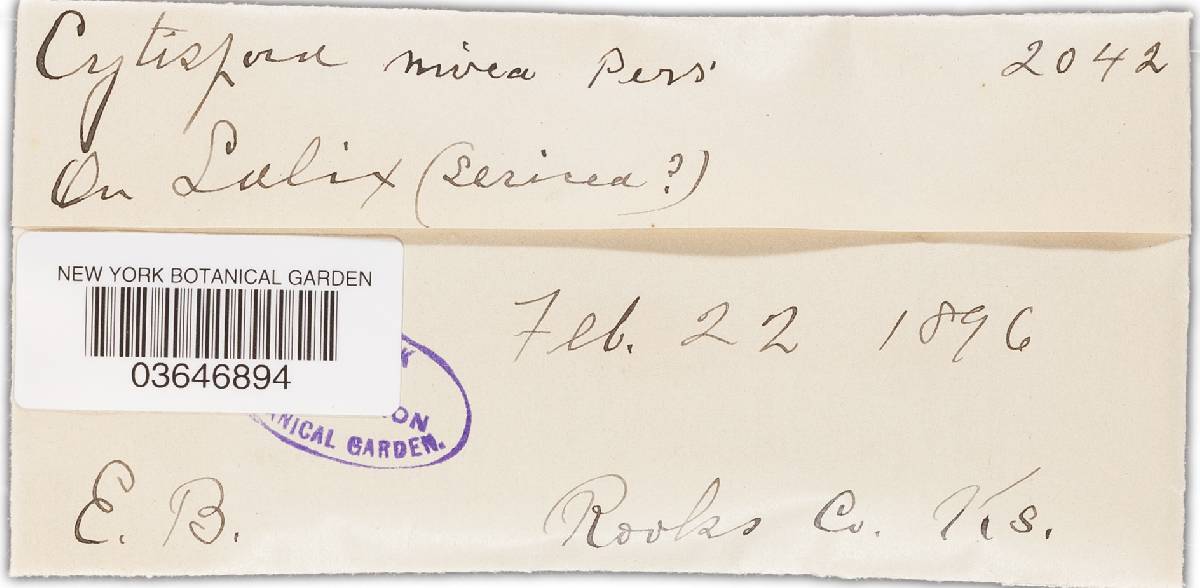 Cytispora nivea Pers 2042
On Salix (sericea?)
NEW YORK BOTANICAL GARDEN
03646894
Feb. 22 1896
GARDEN.
E. B. Rooks Co. Ks.